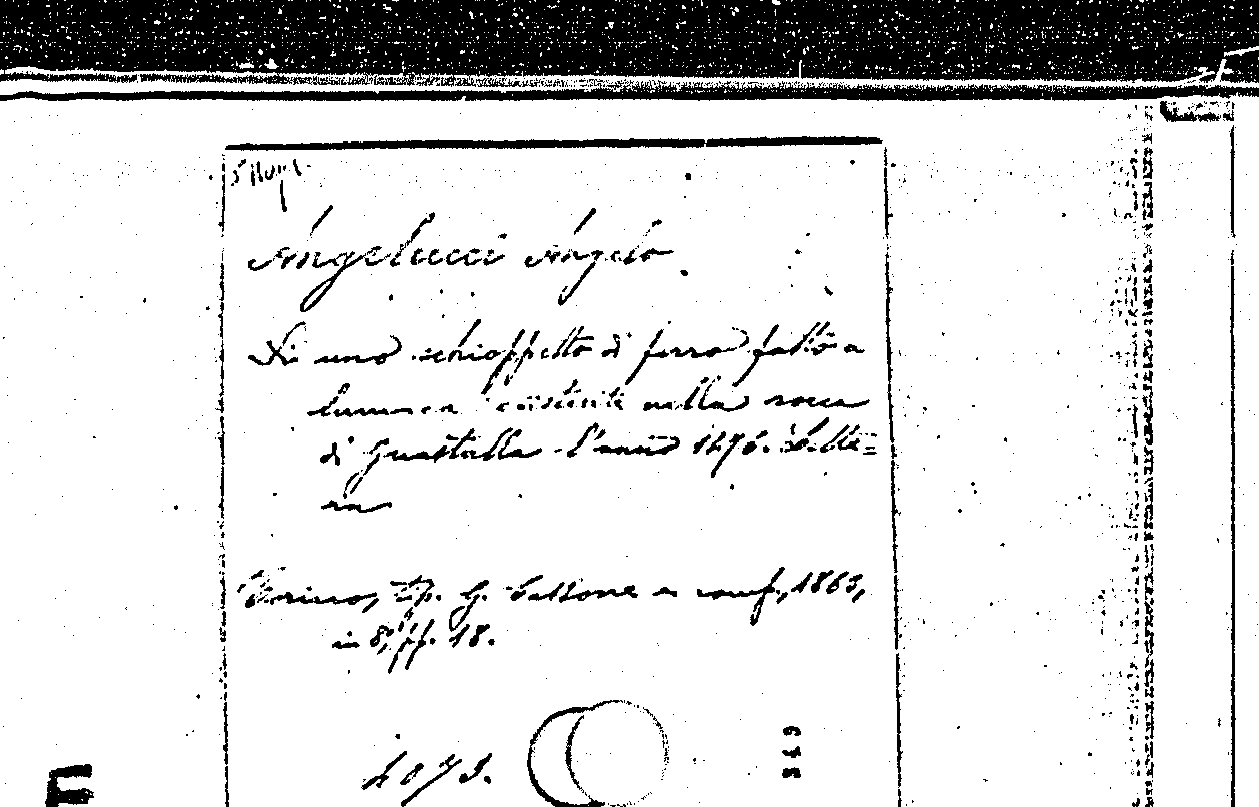 Angelucci Angelo
Di uno schioppetto di ferro fatto a
lumaca esistente nella rocca
di Guastalla l'anno 1476. Lette=
ra
Torino, tip. G. Cassone e comp., 1863,
in 8°, pp. 18.
4073.
349
E